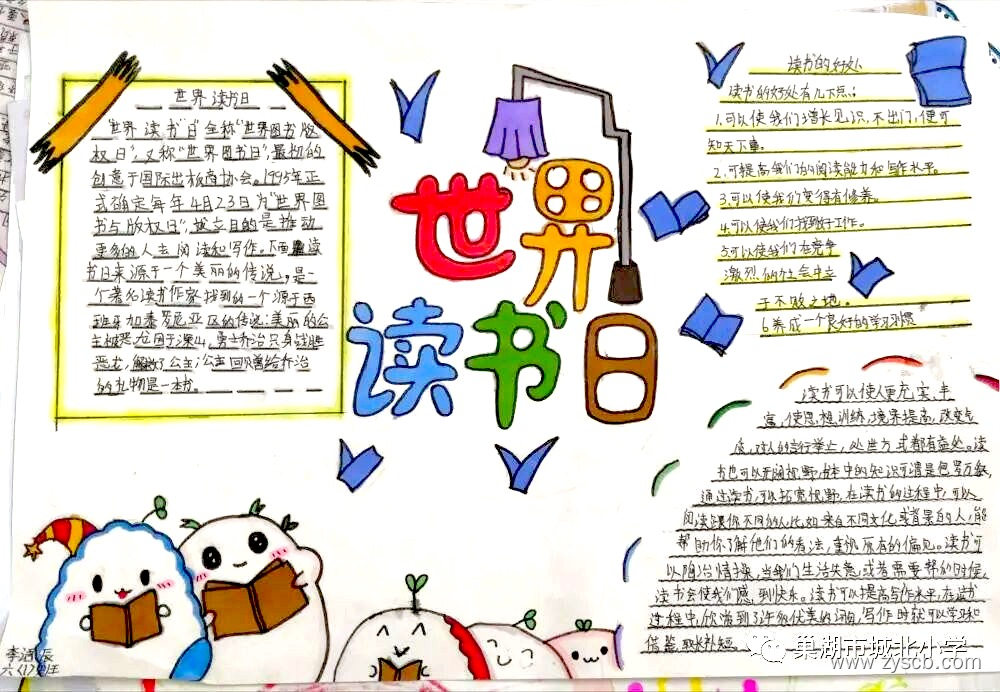 世界读书日
"世界读书"日"全称"世界图书版
权日",又称"世界图书日",最初的
创意于国际出版商协会。1995年正
式确定每年4月23日为"世界图
书与版权日",设立目的是推动
更多的人去阅读和写作。下面读
书日来源于一个美丽的传说。是一
个著名读书作家找到的一个源于西
班牙加泰罗尼亚区的传说:美丽的公
主被恶龙困于深山,勇士乔治只身战胜
恶龙,解救了公主;公主回赠给乔治
的礼物是一本书。
世界
读书日
读书的好处
读书的好处有几下点:
1.可以使我们增长见识,不出门,便可
知天下事。
2.可提高我们的阅读能力和写作水平。
3.可以使我们变得有修养。
4.可以使我们找到好工作。
5.可以使我们在竞争
激烈的社会中立
于不败之地。
6.养成一个良好的学习习惯
读书可以使人更充实、丰
富,使思想训练,境界提高,改变气
质,对人的言行举止,处世方式都有益处。读
书也可以开阔视野,书本中的知识可谓是包罗万象,
通过读书,可以拓宽视野,在读书的过程中,可以
阅读跟你不同的人,比如来自不同文化或背景的人,能
帮助你了解他们的看法,重视原有的偏见。读书可
以陶冶情操,当我们生活失意,或者需要帮的时候,
读书会使我们感到快乐。读书可以提高写作水平,在读书
过程中,欣满到了许多优美的词句,写作时就可以学习和
借鉴,取长补短。
李浩辰
六(1)班
巢湖市城北小学
www.zyscb.com